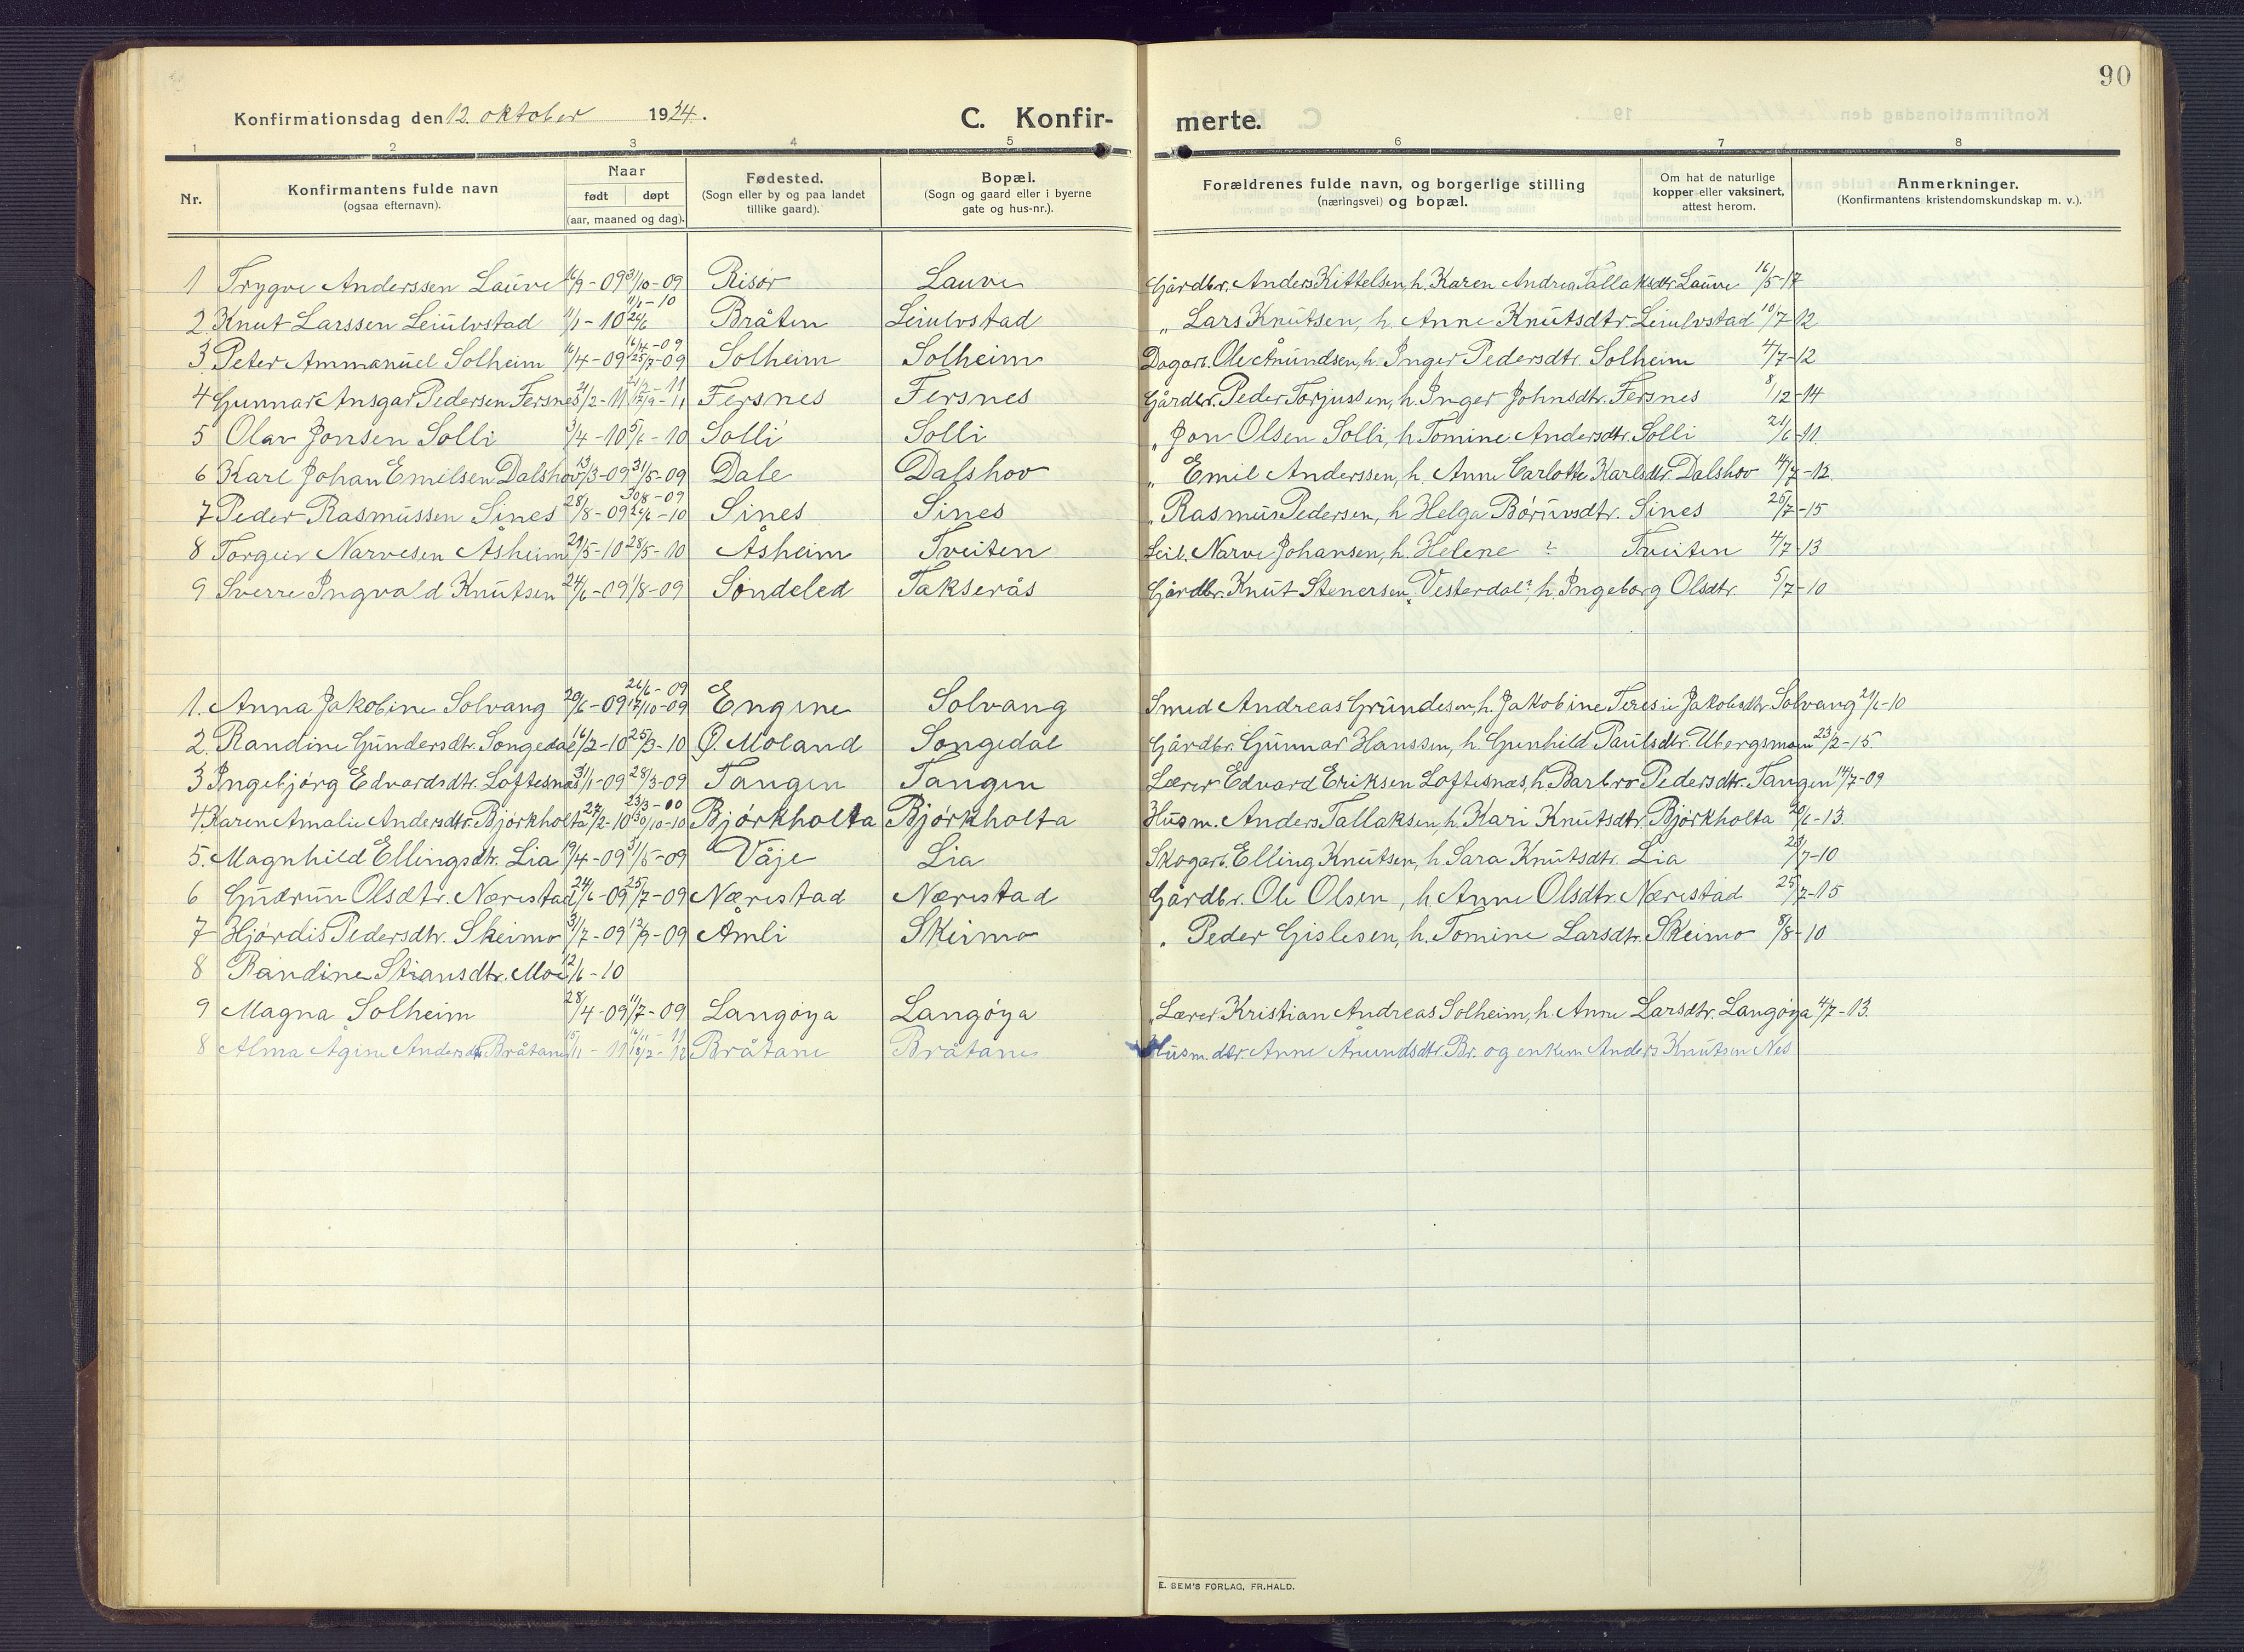 90
Konfirmationsdag den 12. oktober 1924.
C. Konfir-
merte.
1 2 3 4 5 6 7 8
Nr.
Konfirmantens fulde navn
(ogsaa efternavn).
Naar
født døpt
(aar, maaned og dag).
Fødested.
(Sogn eller by og paa landet
tillike gaard).
Bopæl.
(Sogn og gaard eller i byerne
gate og hus-nr.).
Forældrenes fulde navn, og borgerlige stilling
(næringsvei) og bopæl.
Om hat de naturlige
kopper eller vaksinert,
attest herom.
Anmerkninger.
(Konfirmantens kristendomskundskap m. v.).
1 Trygve Anderssen Lauve 16/9-09 31/10-09 Risør Lauve Gårdbr. Anders Kittelsen, h. Karen Andrea Tallaksdtr. Lauve 16/5-17
2 Knut Larssen Leiulvstad 11/1-10 11/1-10 24/6 Bråten Leiulvstad „ Lars Knutsen, h. Anne Knutsdtr. Leiulvstad 10/7-12
3. Peter Ammanuel Solheim 16/4-09 16/4-09 25/7-09 Solheim Solheim Dagarb. Ole Ånundsen, h. Inger Pedersdtr. Solheim 4/7-12
4 Gunnar Ansgar Pedersen Fersnes 21/2-11 21/2-11 17/9-11 Fersnes Fersnes Gårdbr. Peder Torjussen, h. Inger Johnsdtr. Fersnes 8/12-14
5 Olav Jonsen Solli 3/4-10 5/6-10 Solli Solli „ Jon Olsen Solli, h Tomine Andersdtr. Solli 21/6-11.
6 Karl Johan Emilsen Dalshov 13/3-09 31/5-09 Dale Dalshov „ Emil Anderssen, h. Anne Carlotte Karlsdtr. Dalshov 4/7-12.
7 Peder Rasmussen Sines 28/8-09 30/8-09 26/6-10 Sines Sines „ Rasmus Pedersen, h Helga Børuvsdtr. Sines 25/7-15
8 Torgeir Narvesen Åsheim 21/5-10 28/5-10 Åsheim Tveiten Leil. Narve Johansen, h. Helene ? Tveiten 4/7-13
9 Sverre Ingvald Knutsen 24/6-09 1/8-09 Søndeled Takserås Gårdbr. Knut Stenersen „Vesterdal", h. Ingeborg Olsdtr. 5/7-10
1. Anna Jakobine Solvang 20/6-09 26/6-09 17/10-09 Engene Solvang Smed Andreas Grundesen, h. Jakobine Teresie Jakobsdtr. Solvang 21/6-10
2. Randine Gundersdtr. Songedal 16/2-10 25/3-10 Ø. Moland Songedal Gårdbr. Gunnar Hanssen, h. Gunhild Paulsdtr. Ubergsmoen 23/2-15.
3 Ingebjørg Edvardsdtr. Loftesnæs 31/1-09 28/3-09 Tangen Tangen Lærer Edvard Eriksen Loftesnæs, h Barbro Pedersdtr. Tangen 14/7-09
4 Karen Amalie Andersdtr. Bjørkholta 27/2-10 23/3-00 30/10-10 Bjørkholta Bjørkholta Husm. Anders Tallaksen, h. Kari Knutsdtr. Bjørkholta 20/6-13.
5. Magnhild Ellingsdtr. Lia 19/4-09 31/5-09 Våje Lia Skogarb. Elling Knutsen, h. Sara Knutsdtr. Lia /7-10
6 Gudrun Olsdtr. Nærestad 24/6-09 25/7-09 Nærestad Nærestad Gårdbr. Ole Olsen, h. Anne Olsdtr. Nærestad 25/7-15
7 Hjørdis Pedersdtr. Skeimo 3/7-09 12/9-09 Åmli Skeimo „ Peder Gislesen, h. Tomine Larsdtr. Skeimo 8/8-10
8 Randine Stiansdtr. Moe 12/6-10
9 Magna Solheim 28/4-09 11/7-09 Langøya Langøya „Lærer Kristian Andreas Solheim, h. Anne Larsdtr. Langøya 4/7-13.
8 Alma Ågine Andersdtr. Bråtane 15/11-11 16/11-11 18/2-12 Bråtane Bråtane Husm. dtr. Anne Ånundsdtr. Br. og enkem. Anders Knutsen Nes
E. SEM'S FORLAG, FR.HALD.